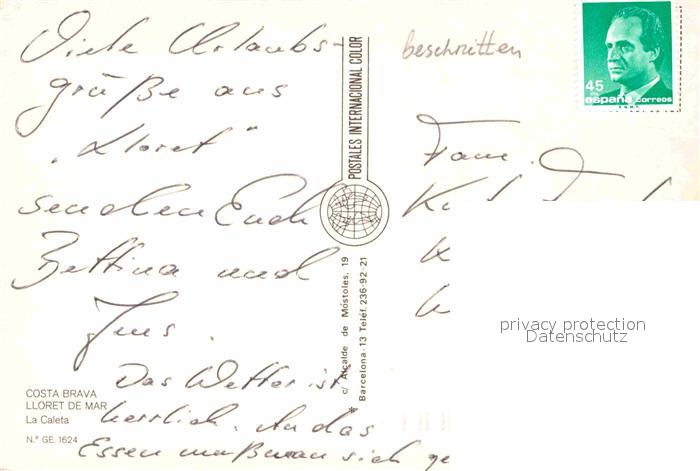 Viele Urlaubs-
grüße aus
"Lloret"
senden Euch
Bettina und
Jens.
Das Wetter ist
herrlich. An das
Essen muß man sich ge
COSTA BRAVA
LLORET DE MAR
La Caleta
N.° GE. 1624
POSTALES INTERNACIONAL COLOR
c/ Alcalde de Móstoles, 19
Barcelona-13 Teléf. 236-92-21
beschnitten
45
PTA
españa correos
F.N.M.T.
Fam.
privacy protection
Datenschutz